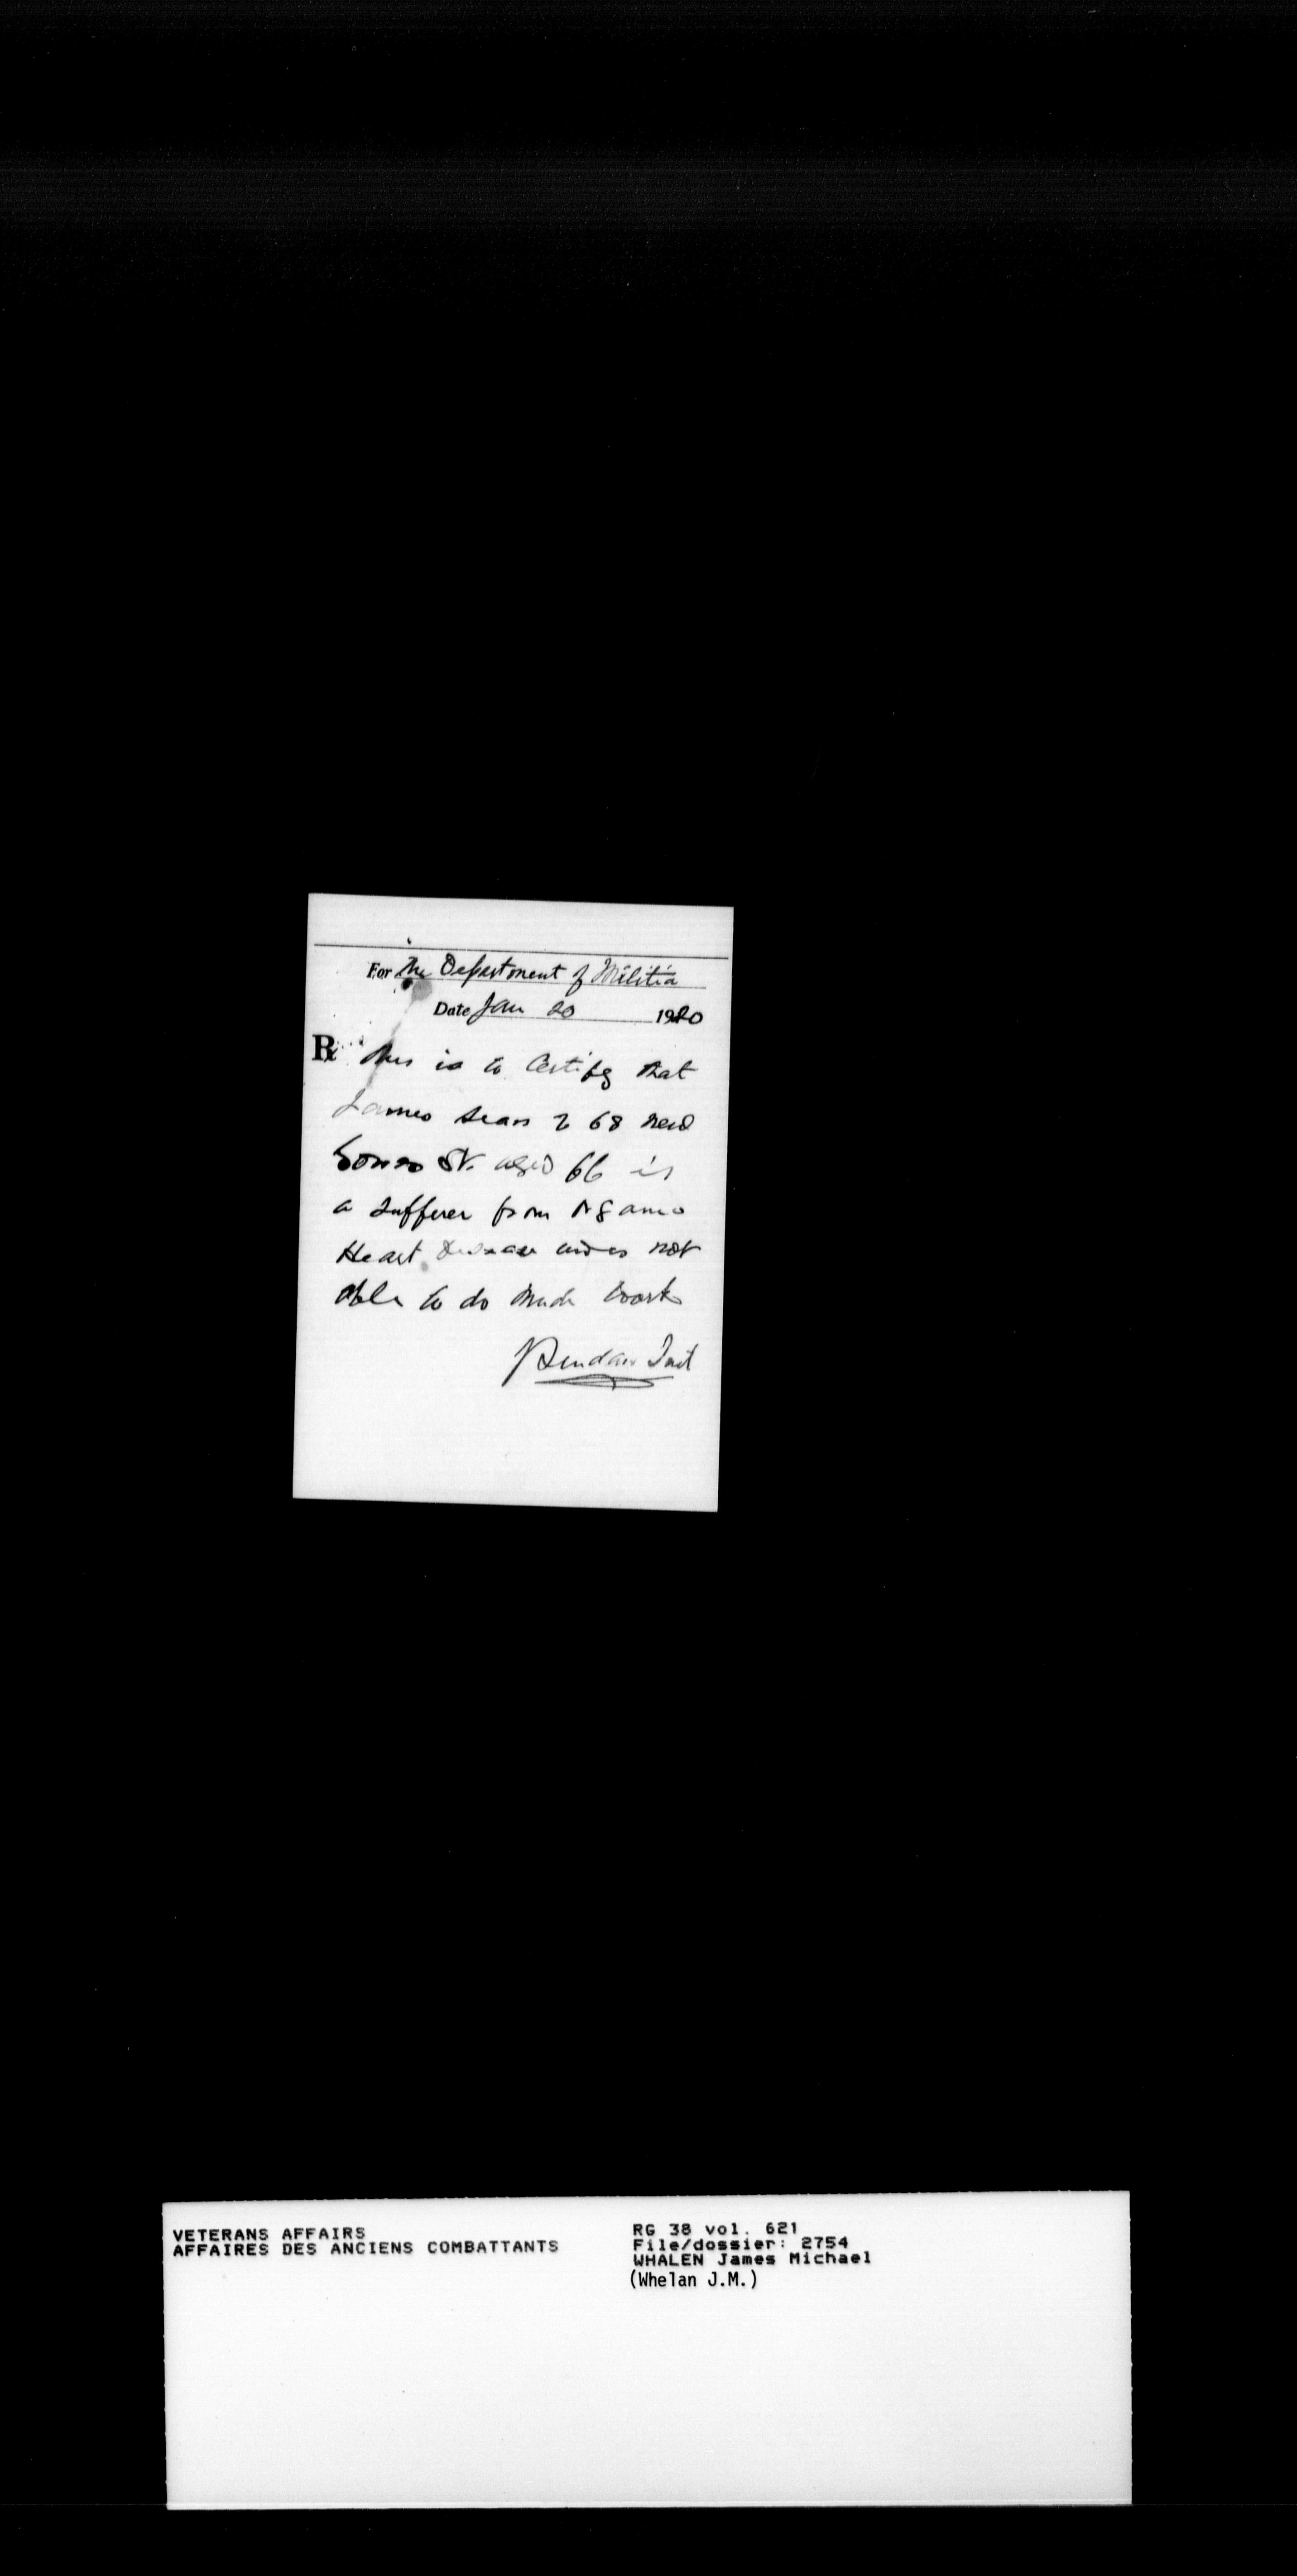 For The Department of Militia
Date Jan 20 1920
Rx This is to Certify that
James Sears 2 68 New
Gower St. aged 66 is
a sufferer from
Heart Disease and is not
able to do much work
VETERANS AFFAIRS
AFFAIRES DES ANCIENS COMBATTANTS
RG 38 vol. 621
File/dossier: 2754
WHALEN James Michael
(Whelan J.M.)